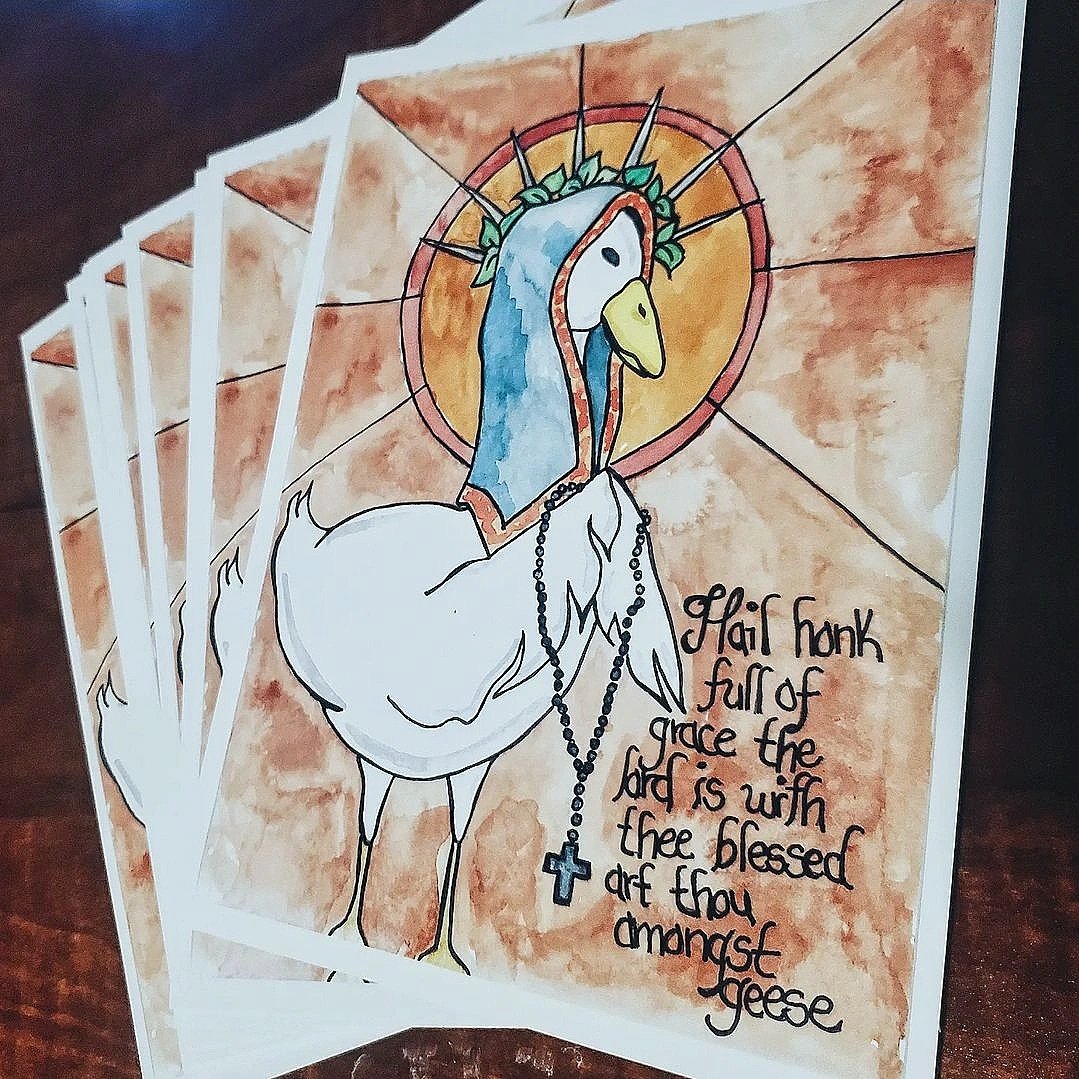 Hail honk
full of
grace the
lord is with
thee blessed
art thou
amongst
geese